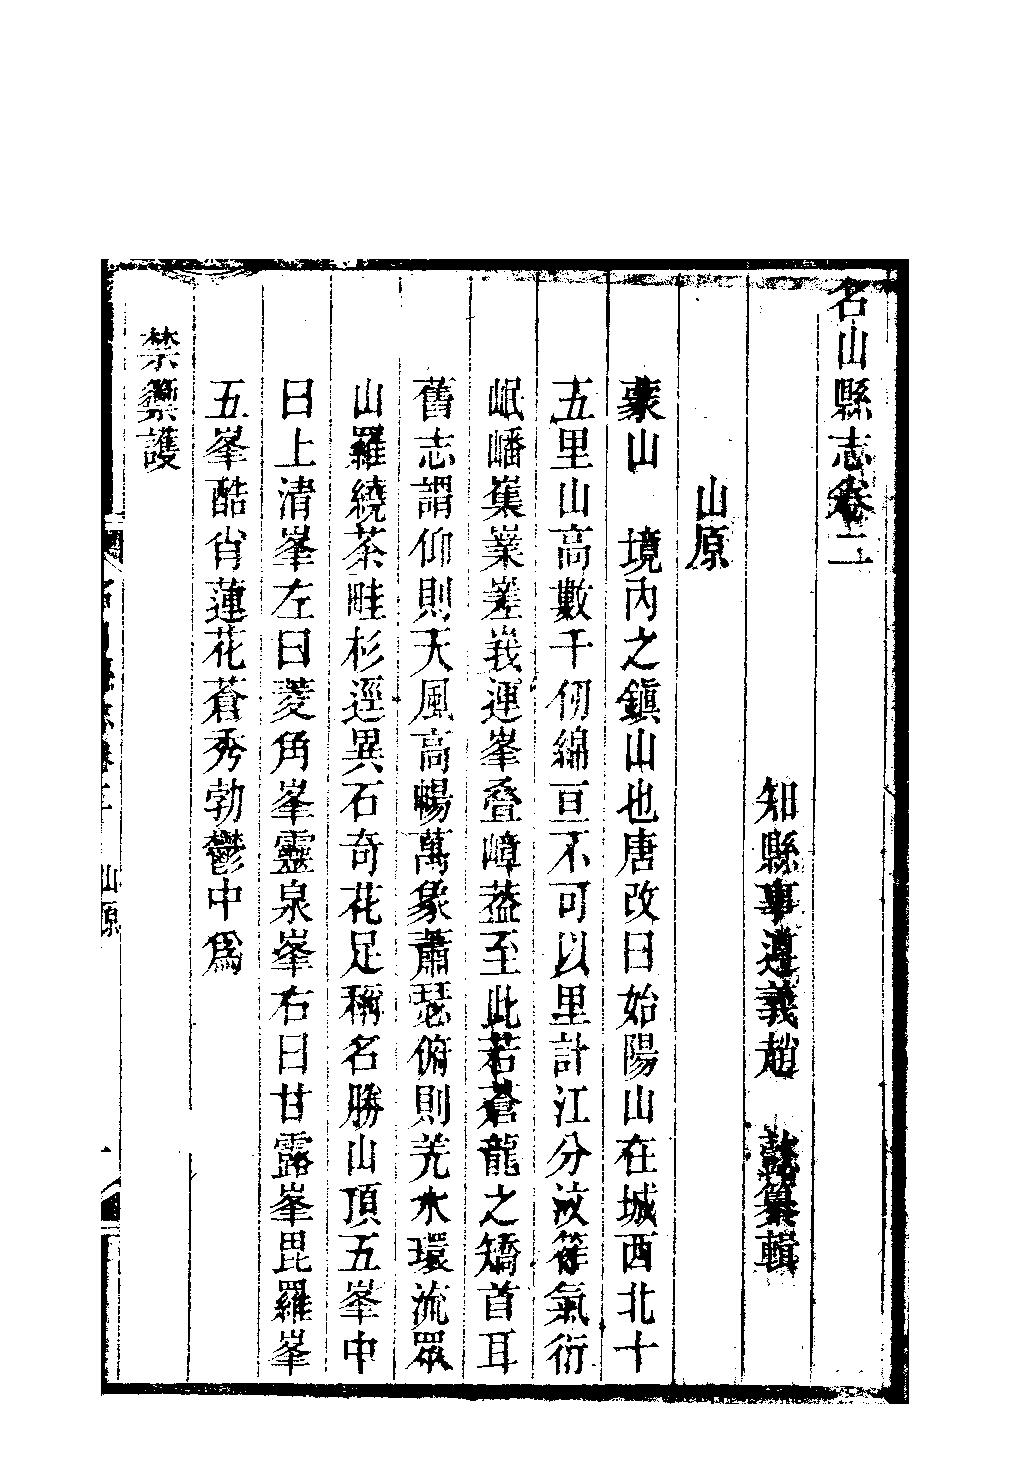 名山縣志卷二
知縣事遵義趙 懿纂輯
山原
蒙山 境內之鎮山也唐改曰始陽山在城西北十
五里山高數千仞綿亘不可以里計江分汶筰氣衍
岷嶓嶲嶪嵳峩連峯叠嶂葢至此若蒼龍之矯首耳
舊志謂仰則天風高暢萬象蕭瑟俯則羌水環流眾
山羅繞茶畦杉逕異石奇花足稱名勝山頂五峯中
曰上清峯左曰菱角峯靈泉峯右曰甘露峯毘羅峯
五峯酷肖蓮花蒼秀勃鬱中爲
禁籞護
名山縣志卷二 山原 一